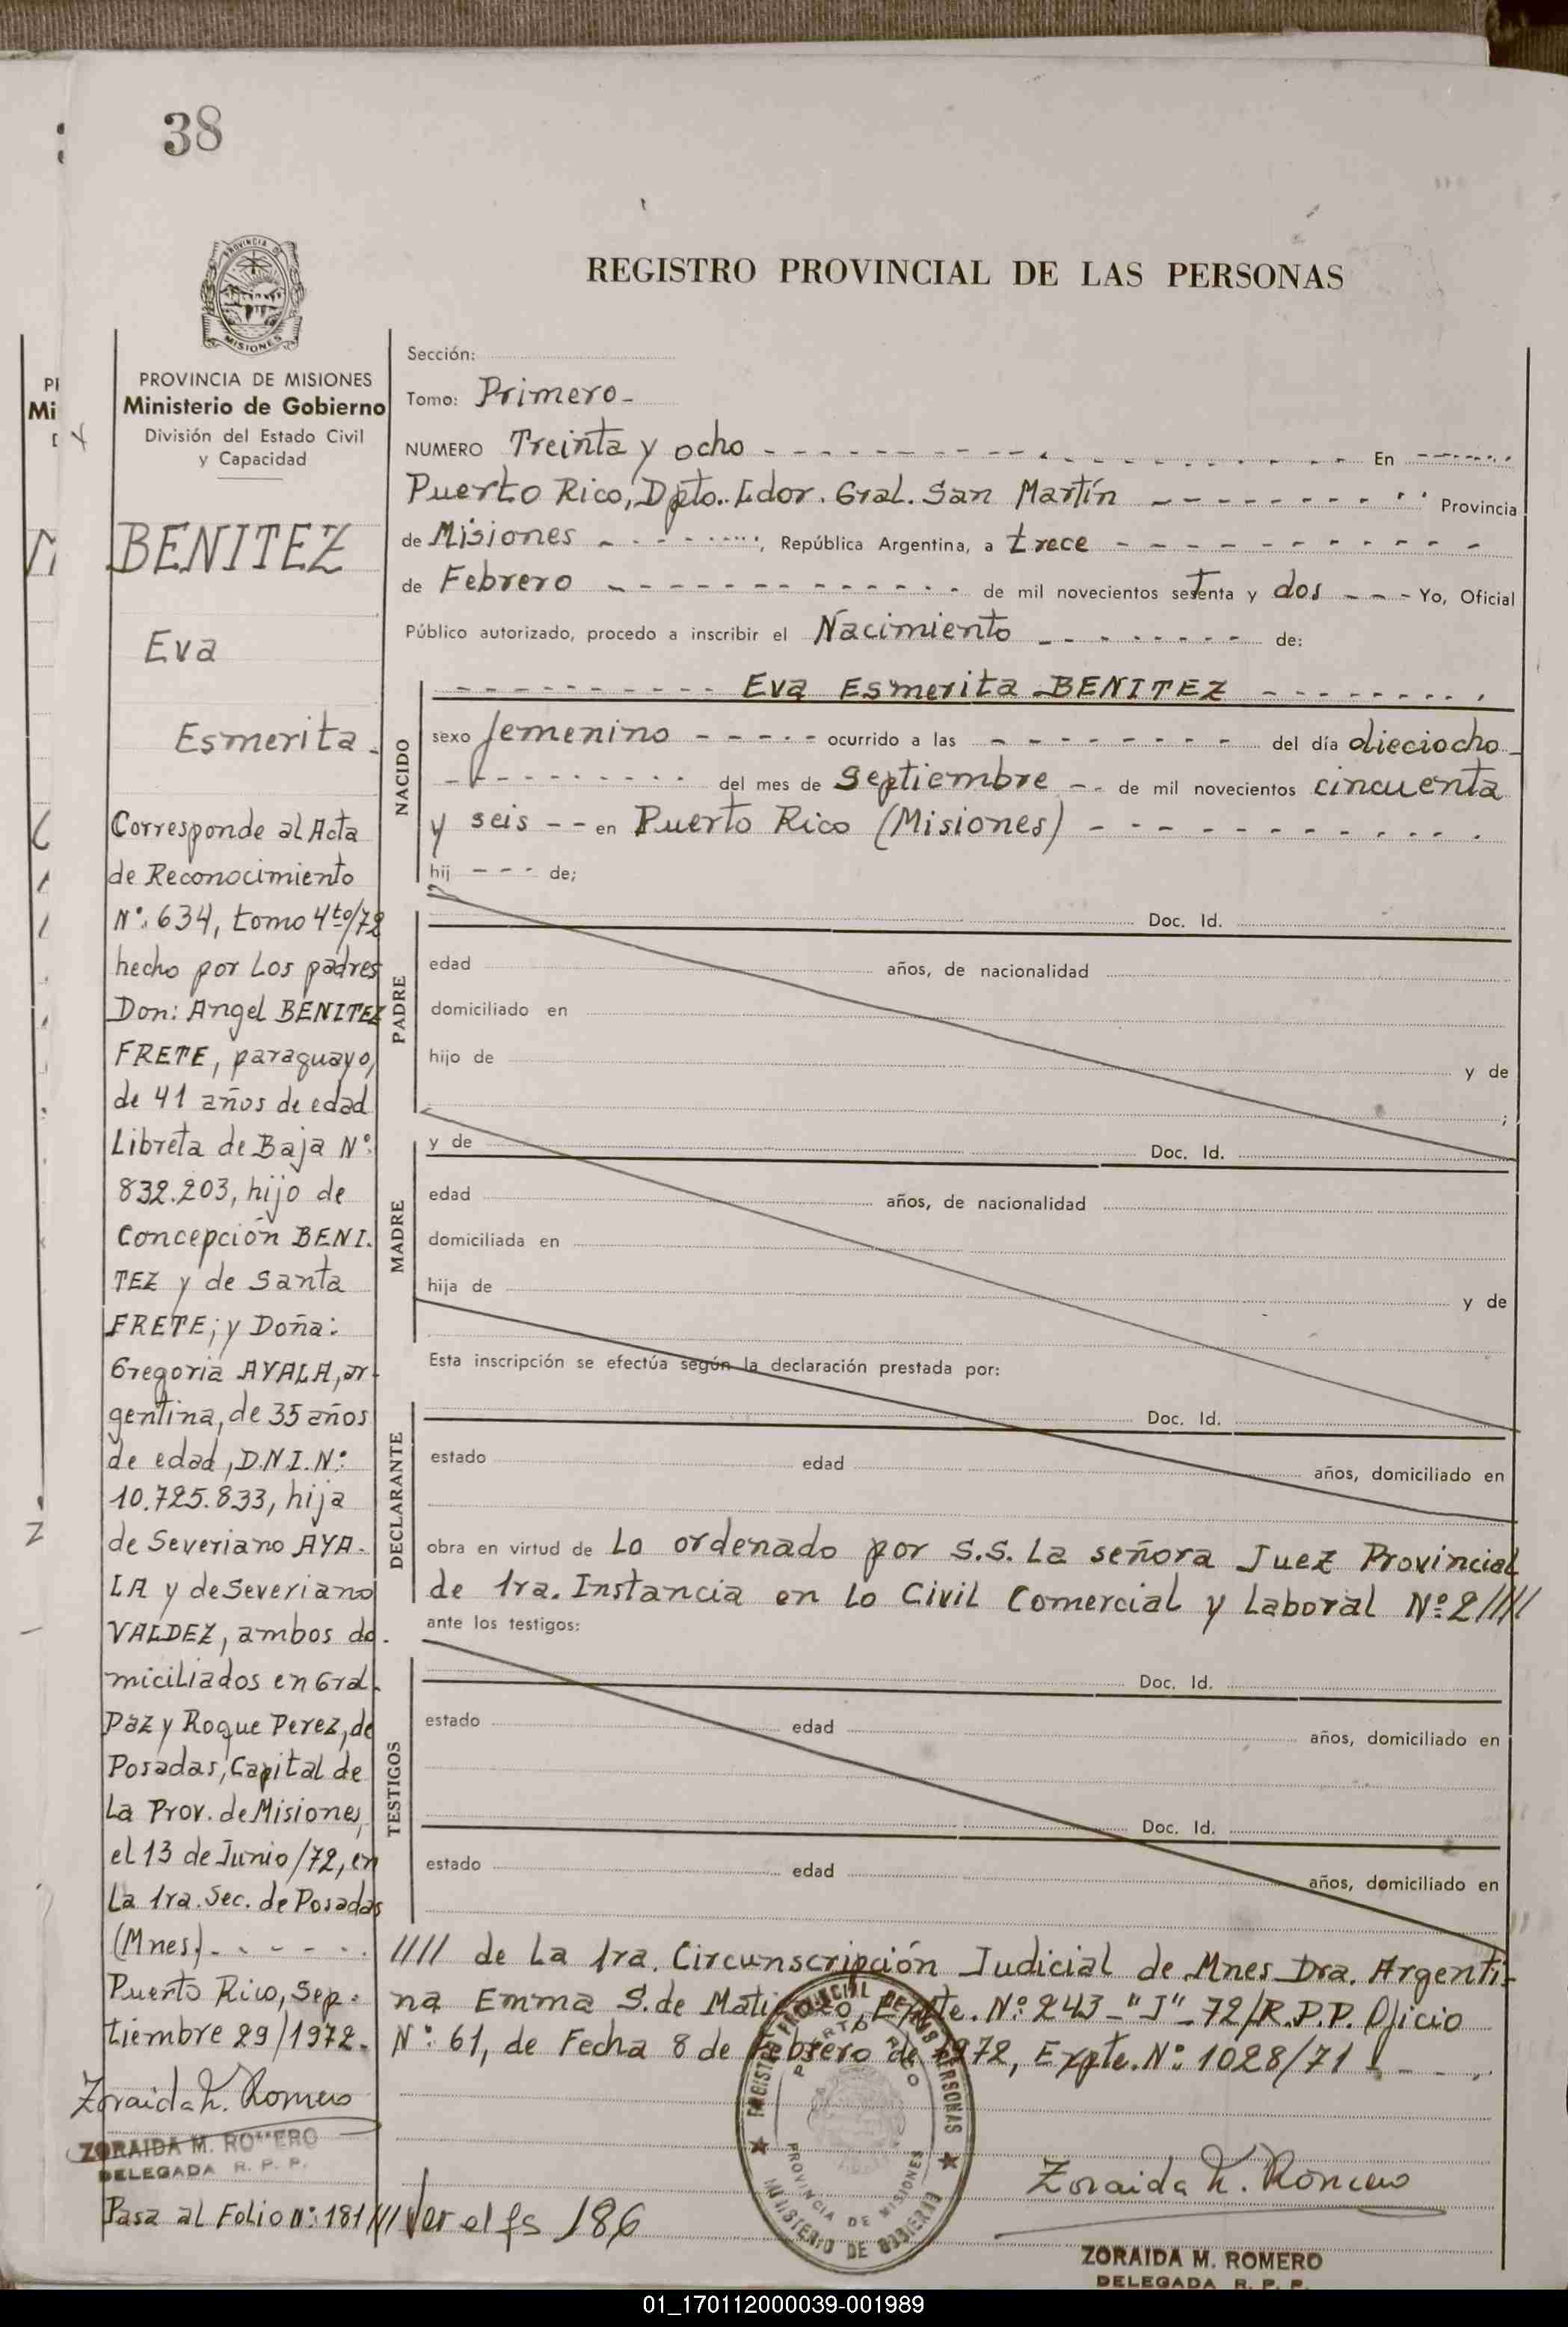 38
PROVINCIA DE
MISIONES
PROVINCIA DE MISIONES
Ministerio de Gobierno
División del Estado Civil
y Capacidad
BENITEZ
Eva
Esmerita.
Corresponde al Acta
de Reconocimiento
Nº: 634, tomo 4to/72
hecho por Los padres
Don: Angel BENITEZ
FRETE, paraguayo,
de 41 años de edad
Libreta de Baja Nº:
832.203, hijo de
Concepción BENI.
TEZ y de Santa
FRETE; y Doña:
Gregoria AYALA, ar-
gentina, de 35 años
de edad, D.N.I. Nº:
10.725.833, hija
de Severiano AYA-
LA y de Severiana
VALDEZ, ambos do-
miciliados en Gral.
Paz y Roque Perez, de
Posadas, Capital de
La Prov. de Misiones,
el 13 de Junio/72, en
La 1ra. Sec. de Posadas
(Mnes) - - - - -
Puerto Rico, Sep-
tiembre 29/1972.
Zoraida M. Romero
ZORAIDA M. ROMERO
DELEGADA R. P. P.
Pasa al Folio nº: 181 //// Ver el fs 186
REGISTRO PROVINCIAL DE LAS PERSONAS
Sección:
Tomo: Primero -
NUMERO Treinta y ocho - - - - - En - - - - -
Puerto Rico, Dpto. Ldor. Gral. San Martín - - - - - Provincia
de Misiones - - - - -, República Argentina, a trece - - - - -
de Febrero - - - - - de mil novecientos setenta y dos - - - Yo, Oficial
Público autorizado, procedo a inscribir el Nacimiento - - - - - de:
- - - - - Eva Esmerita BENITEZ - - - - -
NACIDO
sexo femenino - - - - - ocurrido a las - - - - - del día dieciocho -
- - - - - del mes de Septiembre - - de mil novecientos cincuenta
y seis - - en Puerto Rico (Misiones) - - - - -
hij - - - de;
PADRE
Doc. Id.
edad años, de nacionalidad
domiciliado en
hijo de y de
;
MADRE
y de Doc. Id.
edad años, de nacionalidad
domiciliada en
hija de y de
Esta inscripción se efectúa según la declaración prestada por:
DECLARANTE
Doc. Id.
estado edad años, domiciliado en
obra en virtud de Lo ordenado por S.S. La señora Juez Provincial
de 1ra. Instancia en Lo Civil Comercial y Laboral Nº 2 ////
ante los testigos:
TESTIGOS
Doc. Id.
estado edad años, domiciliado en
Doc. Id.
estado edad años, domiciliado en
//// de La 1ra. Circunscripción Judicial de Mnes Dra. Argenti-
na Emma S. de Expte. Nº: 243 - "J" - 72/R.P.P. Oficio
Nº: 61, de Fecha 8 de Febrero de 1972, Expte. Nº: 1028/71 - - - -
REGISTRO PROVINCIAL DE LAS PERSONAS
PUERTO RICO
PROVINCIA DE MISIONES
MINISTERIO DE GOBIERNO
Zoraida M. Romero
ZORAIDA M. ROMERO
DELEGADA R. P. P.
01_170112000039-001989